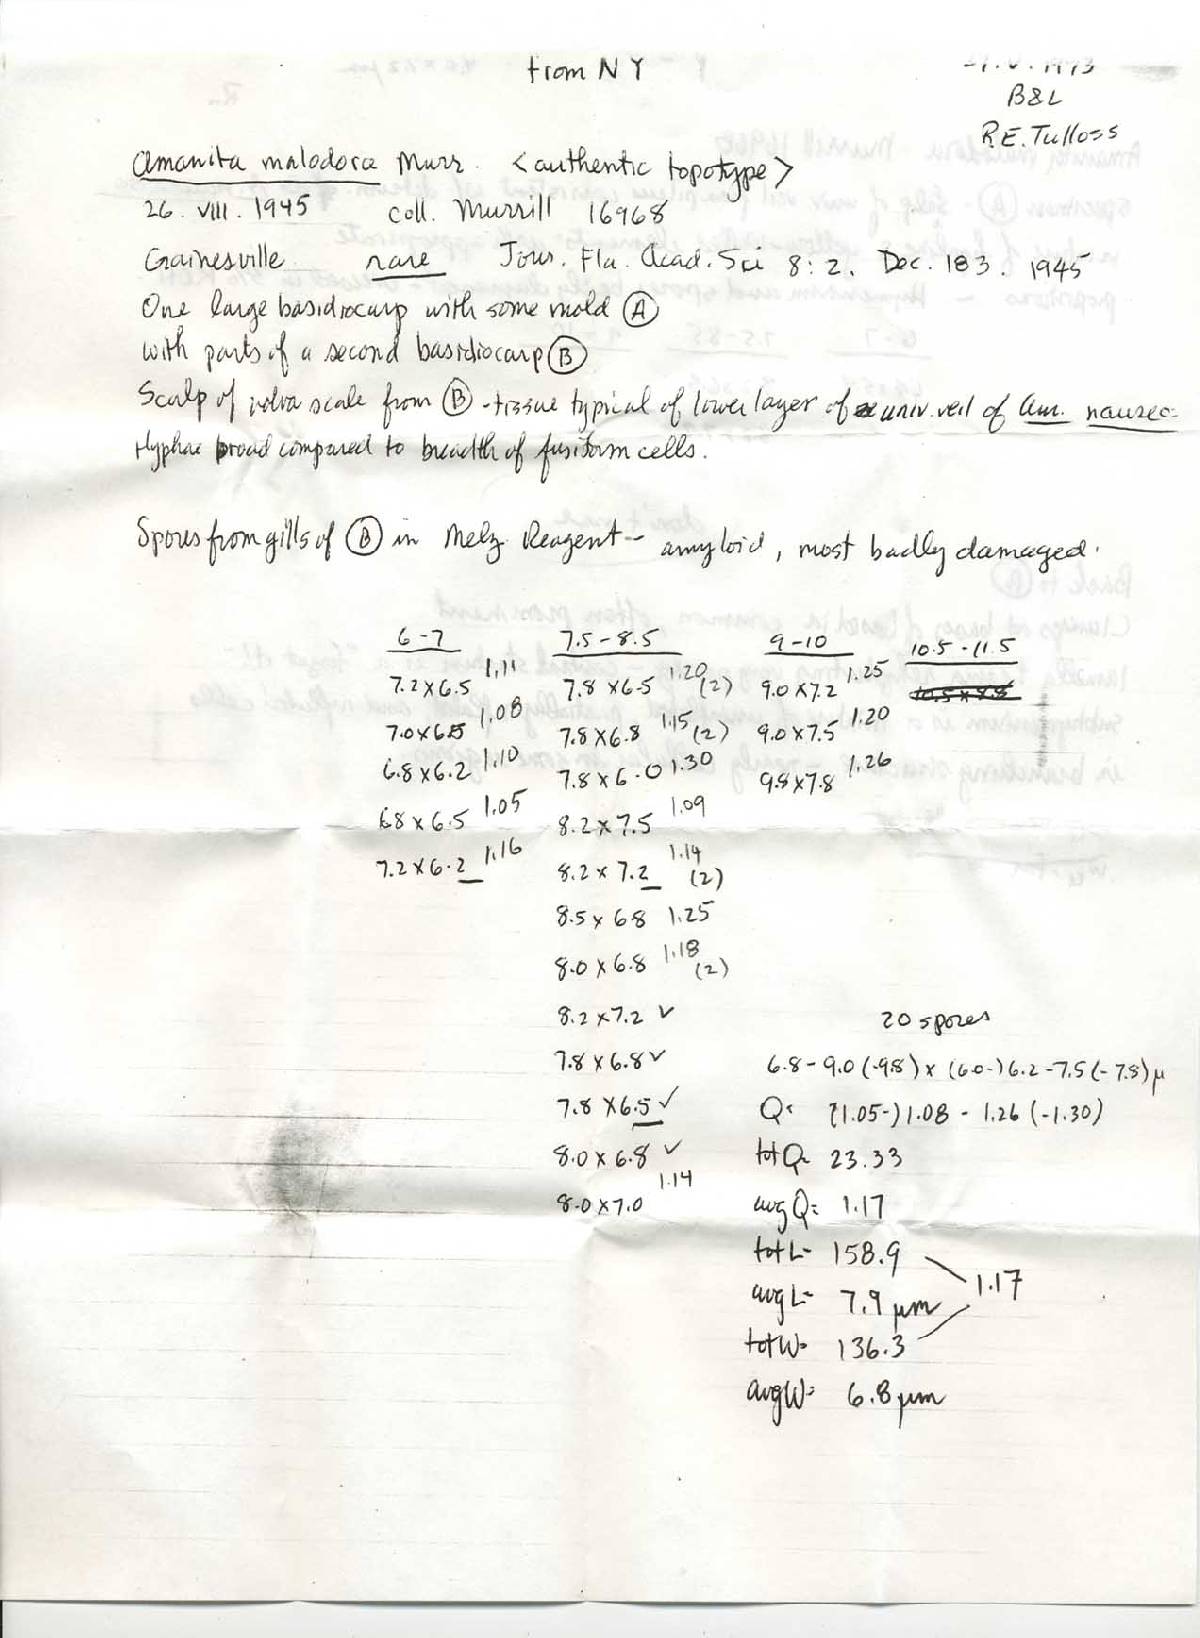 from NY
B&L
R.E. Tulloss
Amanita malodora Murr. <authentic topotype>
26. viii. 1945 coll. Murrill 16968
Gainesville rare Jour. Fla. Acad. Sci 8:2. Dec. 183. 1945
One large basidiocarp with some mold (A)
with parts of a second basidiocarp (B)
Scalp of volva scale from (B) - tissue typical of lower layer of univ. veil of Am. nauseo-
Hyphae broad compared to breadth of fusiform cells.
Spores from gills of (B) in Melz. Reagent - amyloid, most badly damaged.
6-7 7.5-8.5 9-10 10.5-11.5
7.2 x 6.5 1.11 7.8 x 6.5 1.20 (2) 9.0 x 7.2 1.25 10.5 x 8.8
7.0 x 6.5 1.08 7.8 x 6.8 1.15 (2) 9.0 x 7.5 1.20
6.8 x 6.2 1.10 7.8 x 6.0 1.30 9.8 x 7.8 1.26
6.8 x 6.5 1.05 8.2 x 7.5 1.09
7.2 x 6.2 1.16 8.2 x 7.2 1.14 (2)
8.5 x 6.8 1.25
8.0 x 6.8 1.18 (2)
8.2 x 7.2 ✓ 20 spores
7.8 x 6.8 ✓ 6.8-9.0 (-9.8) x (6.0-) 6.2-7.5 (-7.8) μ
7.8 x 6.5 ✓ Q= (1.05-) 1.08 - 1.26 (-1.30)
8.0 x 6.8 ✓ totQ= 23.33
8.0 x 7.0 1.14 avgQ= 1.17
totL= 158.9
avgL= 7.9 μm 1.17
totW= 136.3
avgW= 6.8 μm